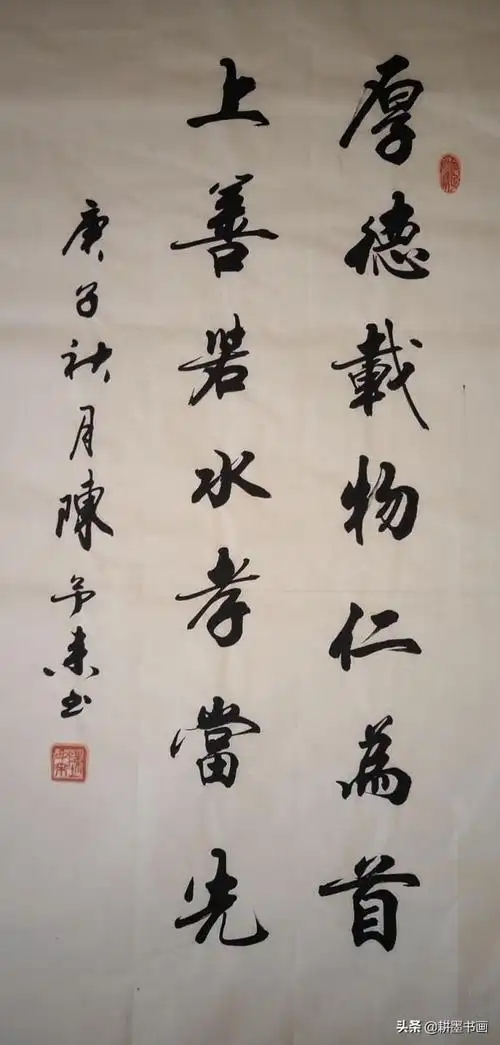 厚德載物仁為首
上善若水孝當先
庚子秋月陳予书
头条 @耕墨书画